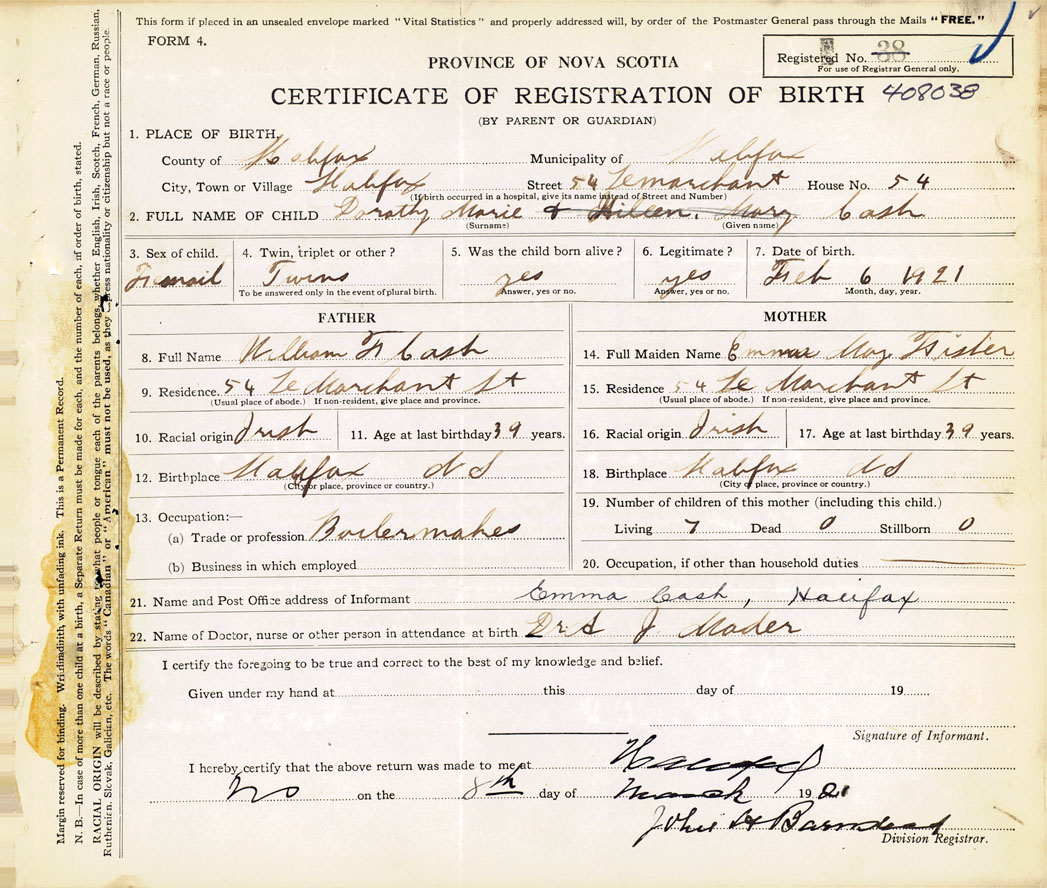 This form if placed in an unsealed envelope marked "Vital Statistics" and properly addressed will, by order of the Postmaster General pass through the Mails "FREE."
FORM 4.
Registered No. 38
For use of Registrar General only.
PROVINCE OF NOVA SCOTIA
CERTIFICATE OF REGISTRATION OF BIRTH 408038
(BY PARENT OR GUARDIAN)
1. PLACE OF BIRTH.
County of Halifax Municipality of Halifax
City, Town or Village Halifax Street 54 Lemarchant House No. 54
(If birth occurred in a hospital, give its name instead of Street and Number)
2. FULL NAME OF CHILD Dorathy Marie & Hilleen, Mary Cash
(Surname) (Given name)
3. Sex of child. 4. Twin, triplet or other? 5. Was the child born alive? 6. Legitimate? 7. Date of birth.
Femail Twins yes yes Feb 6 1921
To be answered only in the event of plural birth. Answer, yes or no. Answer, yes or no. Month, day, year.
FATHER MOTHER
8. Full Name William F Cash 14. Full Maiden Name Emma May Fister
9. Residence. 54 Le Marchant St 15. Residence 54 Le Marchant St
(Usual place of abode.) If non-resident, give place and province. (Usual place of abode.) If non-resident, give place and province.
10. Racial origin Irish 11. Age at last birthday 39 years. 16. Racial origin Irish 17. Age at last birthday 39 years.
12. Birthplace Halifax N S 18. Birthplace Halifax N S
(City or place, province or country.) (City or place, province or country.)
13. Occupation:— 19. Number of children of this mother (including this child.)
(a) Trade or profession Boilermaker Living 7 Dead 0 Stillborn 0
(b) Business in which employed 20. Occupation, if other than household duties
21. Name and Post Office address of Informant Emma Cash, Halifax
22. Name of Doctor, nurse or other person in attendance at birth Dr A J Mader
I certify the foregoing to be true and correct to the best of my knowledge and belief.
Given under my hand at this day of 19
Signature of Informant.
I hereby certify that the above return was made to me at Halifax
NS on the 8th day of March 1921
John H Barnstead
Division Registrar.
Margin reserved for binding. Write plainly, with unfading ink. This is a Permanent Record.
N. B.—In case of more than one child at a birth, a Separate Return must be made for each, and the number of each, in order of birth, stated.
RACIAL ORIGIN will be described by stating to what people or tongue each of the parents belongs, whether English, Irish, Scotch, French, German, Russian,
Ruthenien, Slovak, Galician, etc. The words "Canadian" or "American" must not be used, as they express nationality or citizenship but not a race or people.